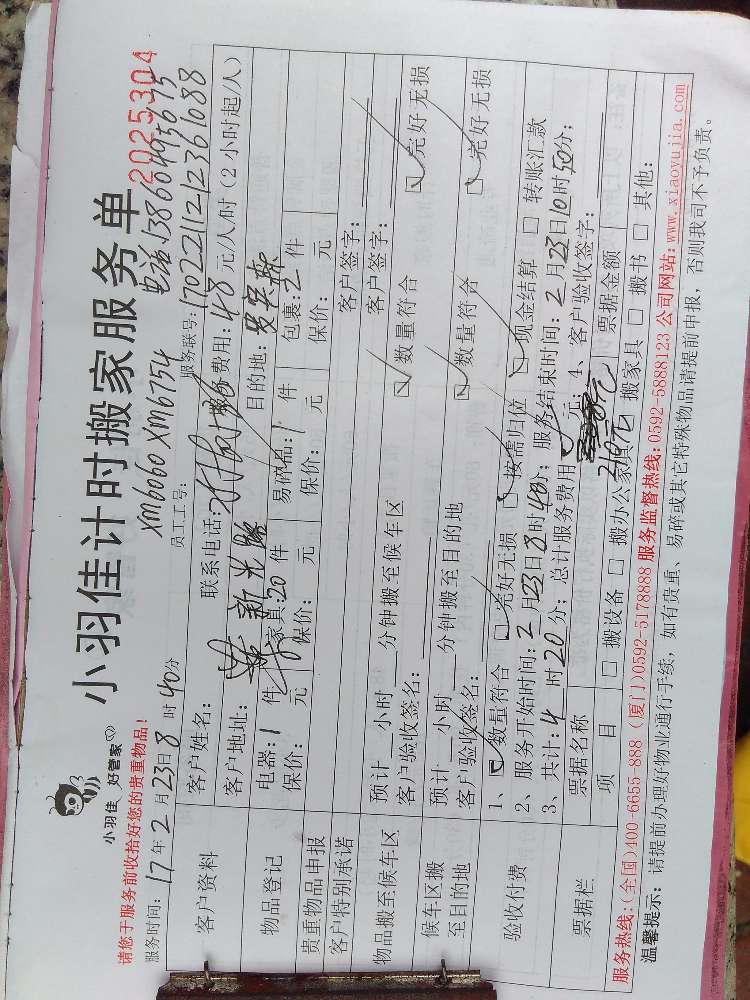 小羽佳 好管家
小羽佳计时搬家服务单
2025304
请您于服务前收拾好您的贵重物品!
XM6060 XM6754
电话13860495675
服务时间:17年2月23日8时40分
员工工号:
服务联号:170221121236l088
客户资料
客户姓名:
联系电话:
服务费用:48元/人/时(2小时起/人)
客户地址:
目的地:
物品登记
电器:1件
家具:20件
易碎品:1件
包裹:2件
贵重物品申报
保价: 元
保价: 元
保价: 元
保价: 元
客户特别承诺
客户签字:
物品搬至候车区
预计 小时 分钟搬至候车区
客户签字:
客户验收签名:
数量符合
完好无损
候车区搬至目的地
预计 小时 分钟搬至目的地
客户验收签名:
数量符合
完好无损
验收付费
1、数量符合 完好无损 按需归位 现金结算 转账汇款
2、服务开始时间:2月23日8时40分;服务结束时间:2月23日10时50分;
3、共计:4时20分;总计服务费用 元;4、客户验收签字:
210元
票据栏
票据名称
票据金额
项目
搬设备 搬办公家具 搬家具 搬书 其他:
服务热线:(全国)400-6655-888 (厦门)0592-5178888 服务监督热线:0592-5888123 公司网站:www.xiaoyujia.com
温馨提示: 请提前办理好物业通行手续,如有贵重、易碎或其它特殊物品请提前申报,否则我司不予负责。